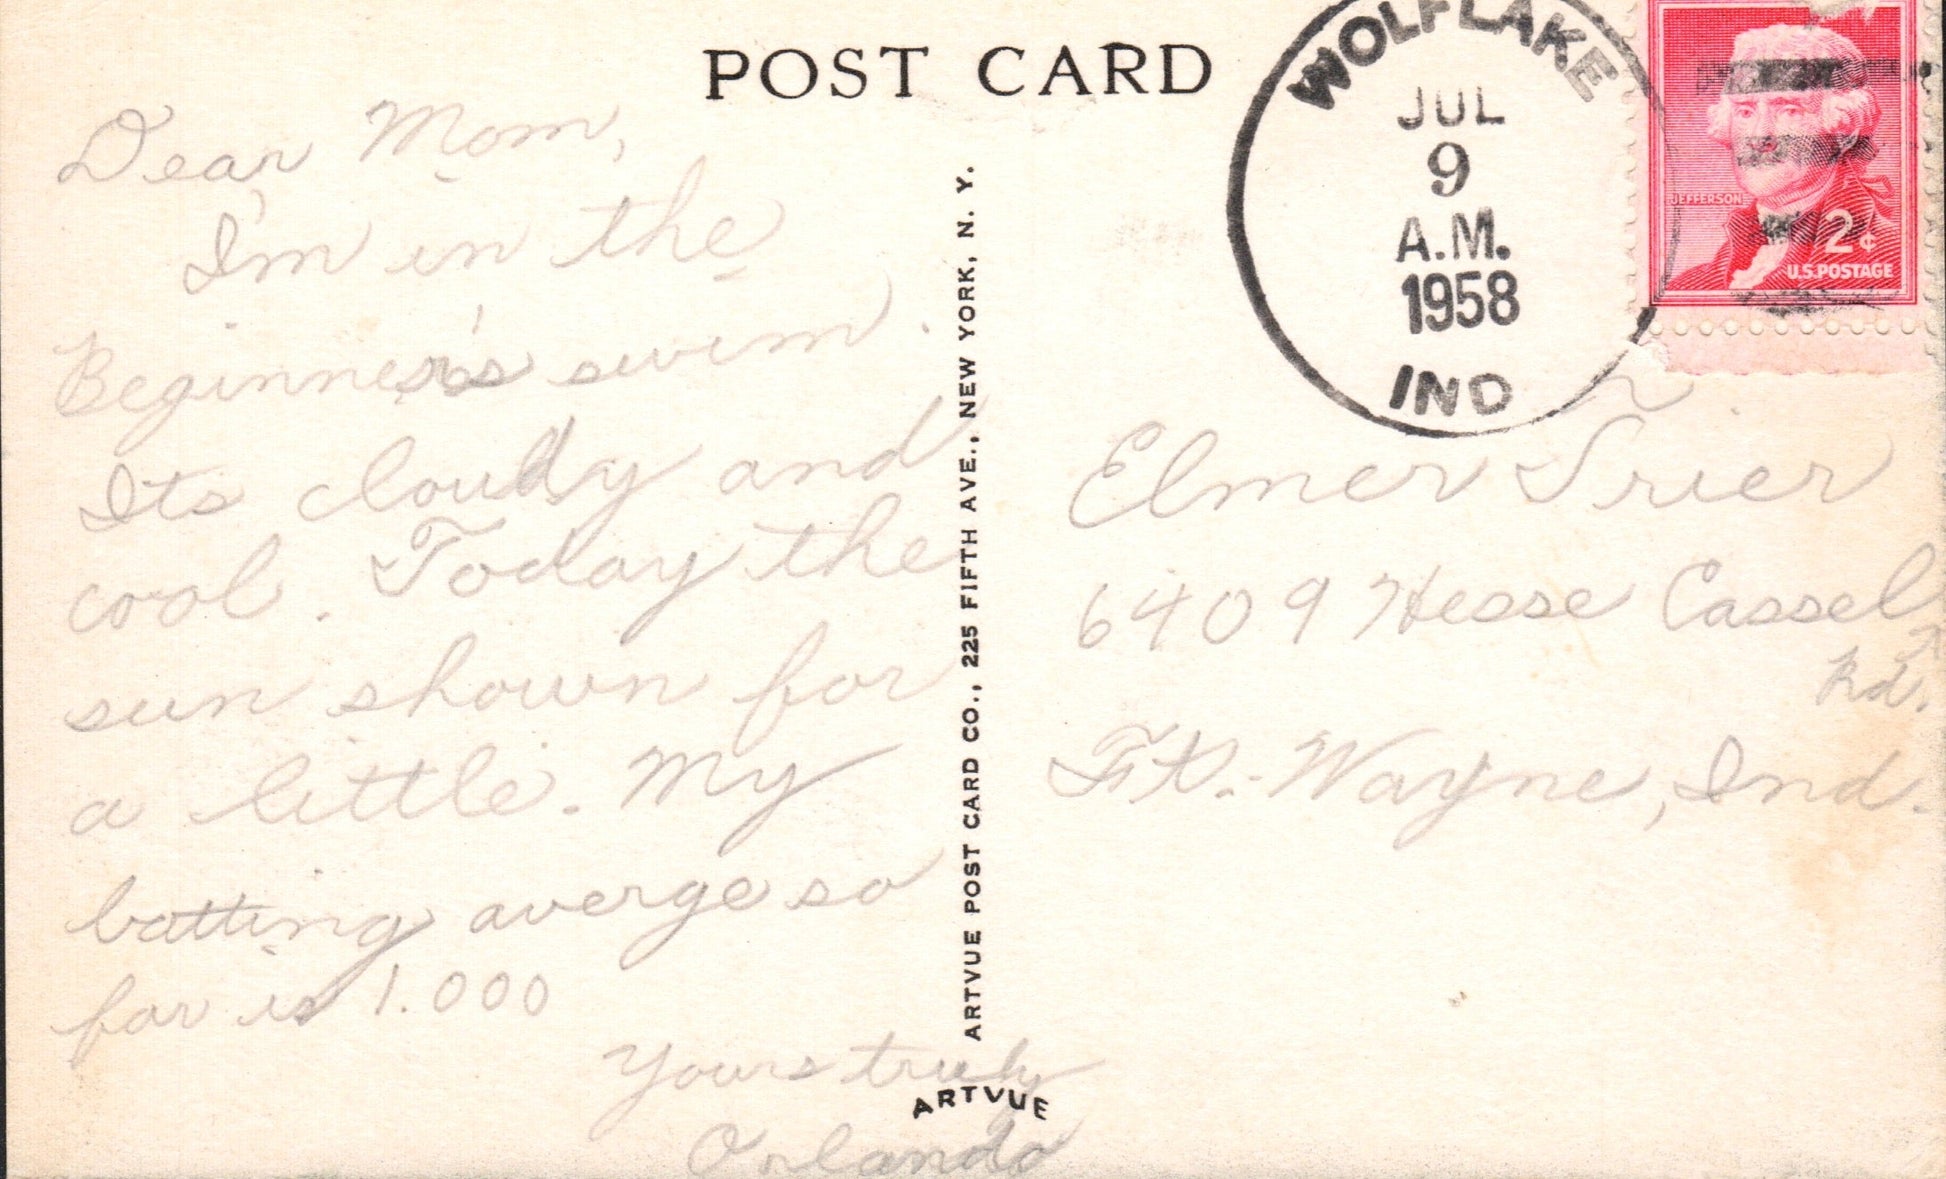 POST CARD
WOLFLAKE
JUL
9
A.M.
1958
IND
JEFFERSON
2¢
U.S. POSTAGE
Dear Mom,
I'm in the
Beginner's swim.
Its cloudy and
cool. Today the
sun shown for
a little. My
batting averge so
far is 1.000
Yours truly
Orlando
ARTVUE POST CARD CO., 225 FIFTH AVE., NEW YORK, N. Y.
ARTVUE
Elmer Trier
6409 Hesse Cassel
Rd.
Ft. Wayne, Ind.